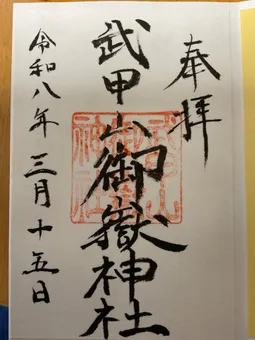 奉拝
武甲山御嶽神社
令和八年三月十五日